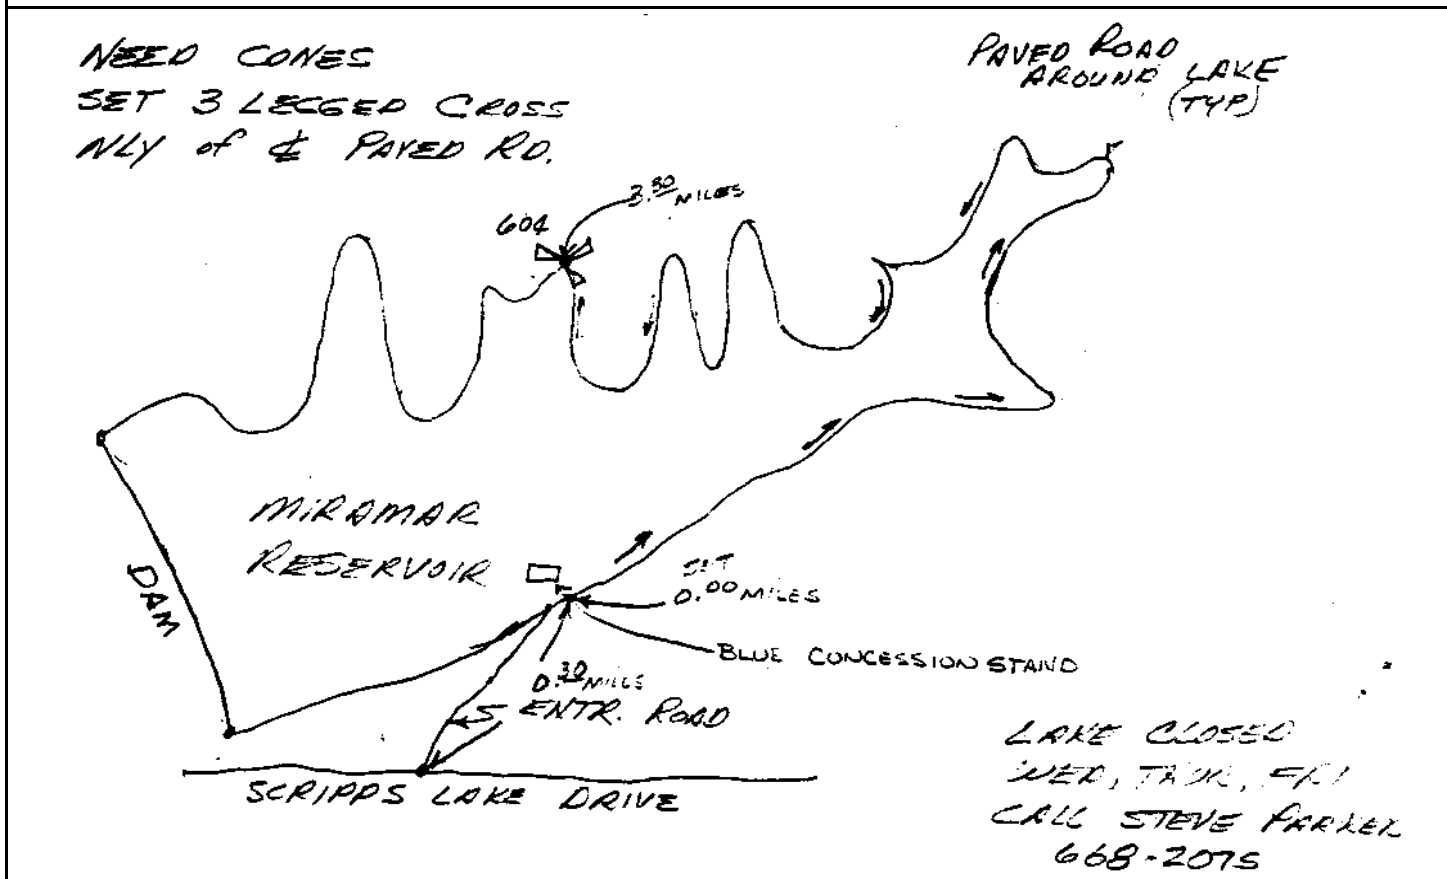 NEED CONES
SET 3 LEGGED CROSS
NLY of ℄ PAVED RD.
PAVED ROAD
AROUND LAKE
(TYP)
3.30 MILES
604
MIRAMAR
RESERVOIR
DAM
SET
0.00 MILES
BLUE CONCESSION STAND
0.30 MILES
ENTR. ROAD
SCRIPPS LAKE DRIVE
LAKE CLOSED
WED, THUR, FRI
CALL STEVE PARKER
668-2075